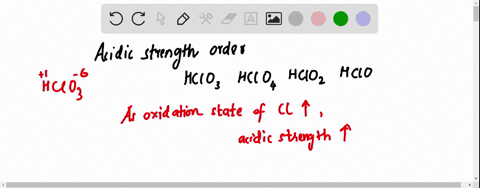 Acidic strength order
HClO3 HClO4 HClO2 HClO
+1 -6
HClO3
As oxidation state of Cl ↑,
acidic strength ↑